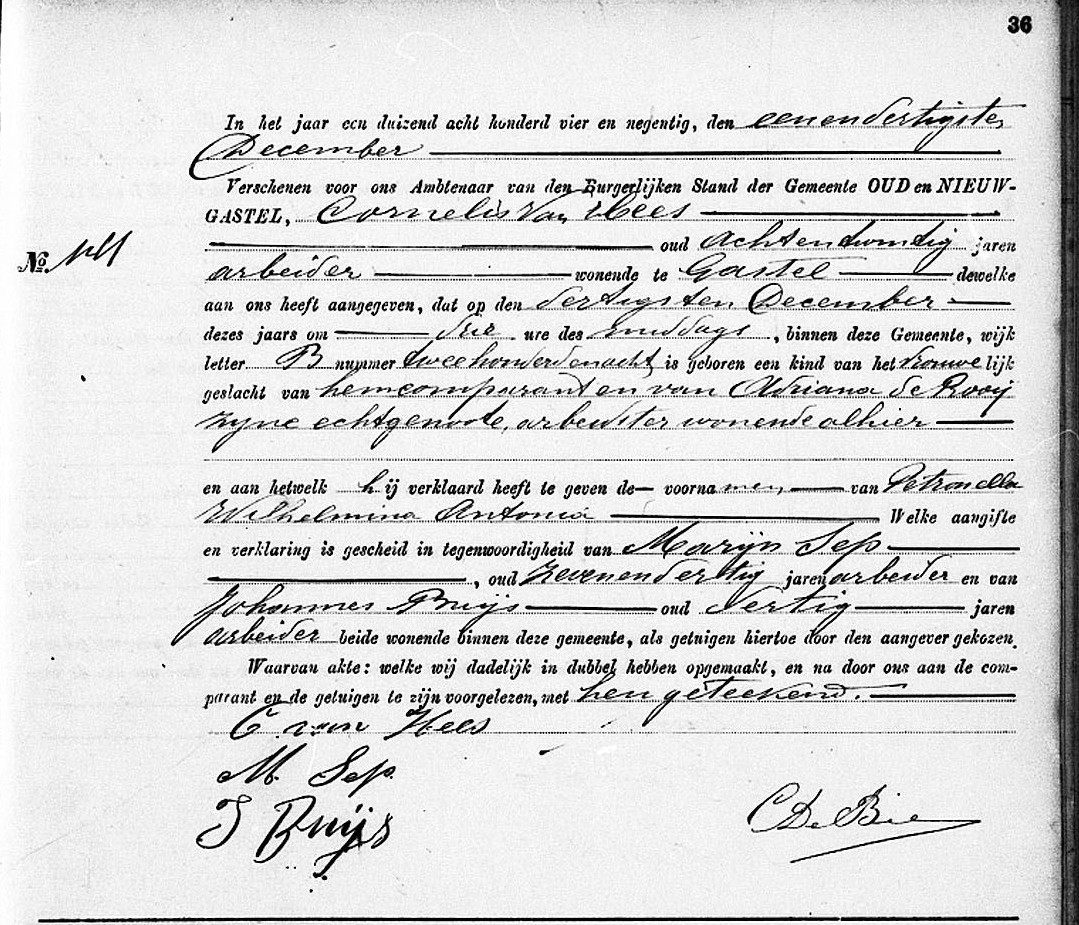 36
In het jaar een duizend acht honderd vier en negentig, den eenendertigsten
December
Verschenen voor ons Ambtenaar van den Burgerlijken Stand der Gemeente OUD en NIEUW-
GASTEL, Cornelis Van Hees
oud achtentwintig jaren
No.
arbeider wonende te Gastel dewelke
aan ons heeft aangegeven, dat op den dertigsten December
dezes jaars om drie ure des middags, binnen deze Gemeente, wijk
letter B nummer tweehonderdenacht is geboren een kind van het vrouwelijk
geslacht van hem comparant en van Adriana de Rooij
zyne echtgenoote, arbeidster wonende alhier
en aan hetwelk hij verklaard heeft te geven de voornamen van Petronella
Wilhelmina Antonia Welke aangifte
en verklaring is gescheid in tegenwoordigheid van Marijn Sep
, oud zevenendertig jaren arbeider en van
Johannes Buijs oud dertig jaren
arbeider beide wonende binnen deze gemeente, als getuigen hiertoe door den aangever gekozen.
Waarvan akte: welke wij dadelijk in dubbel hebben opgemaakt, en na door ons aan de com-
parant en de getuigen te zijn voorgelezen, met hen geteekend.
C. van Hees
M. Sep.
J Buijs
C De Bie